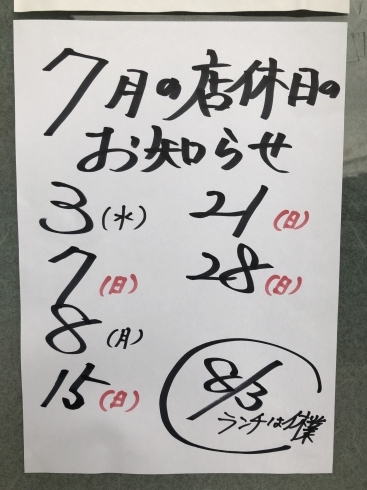 7月の店休日の
お知らせ
3(水)
7(日)
8(月)
15(日)
21(日)
28(日)
8/3
ランチは休業